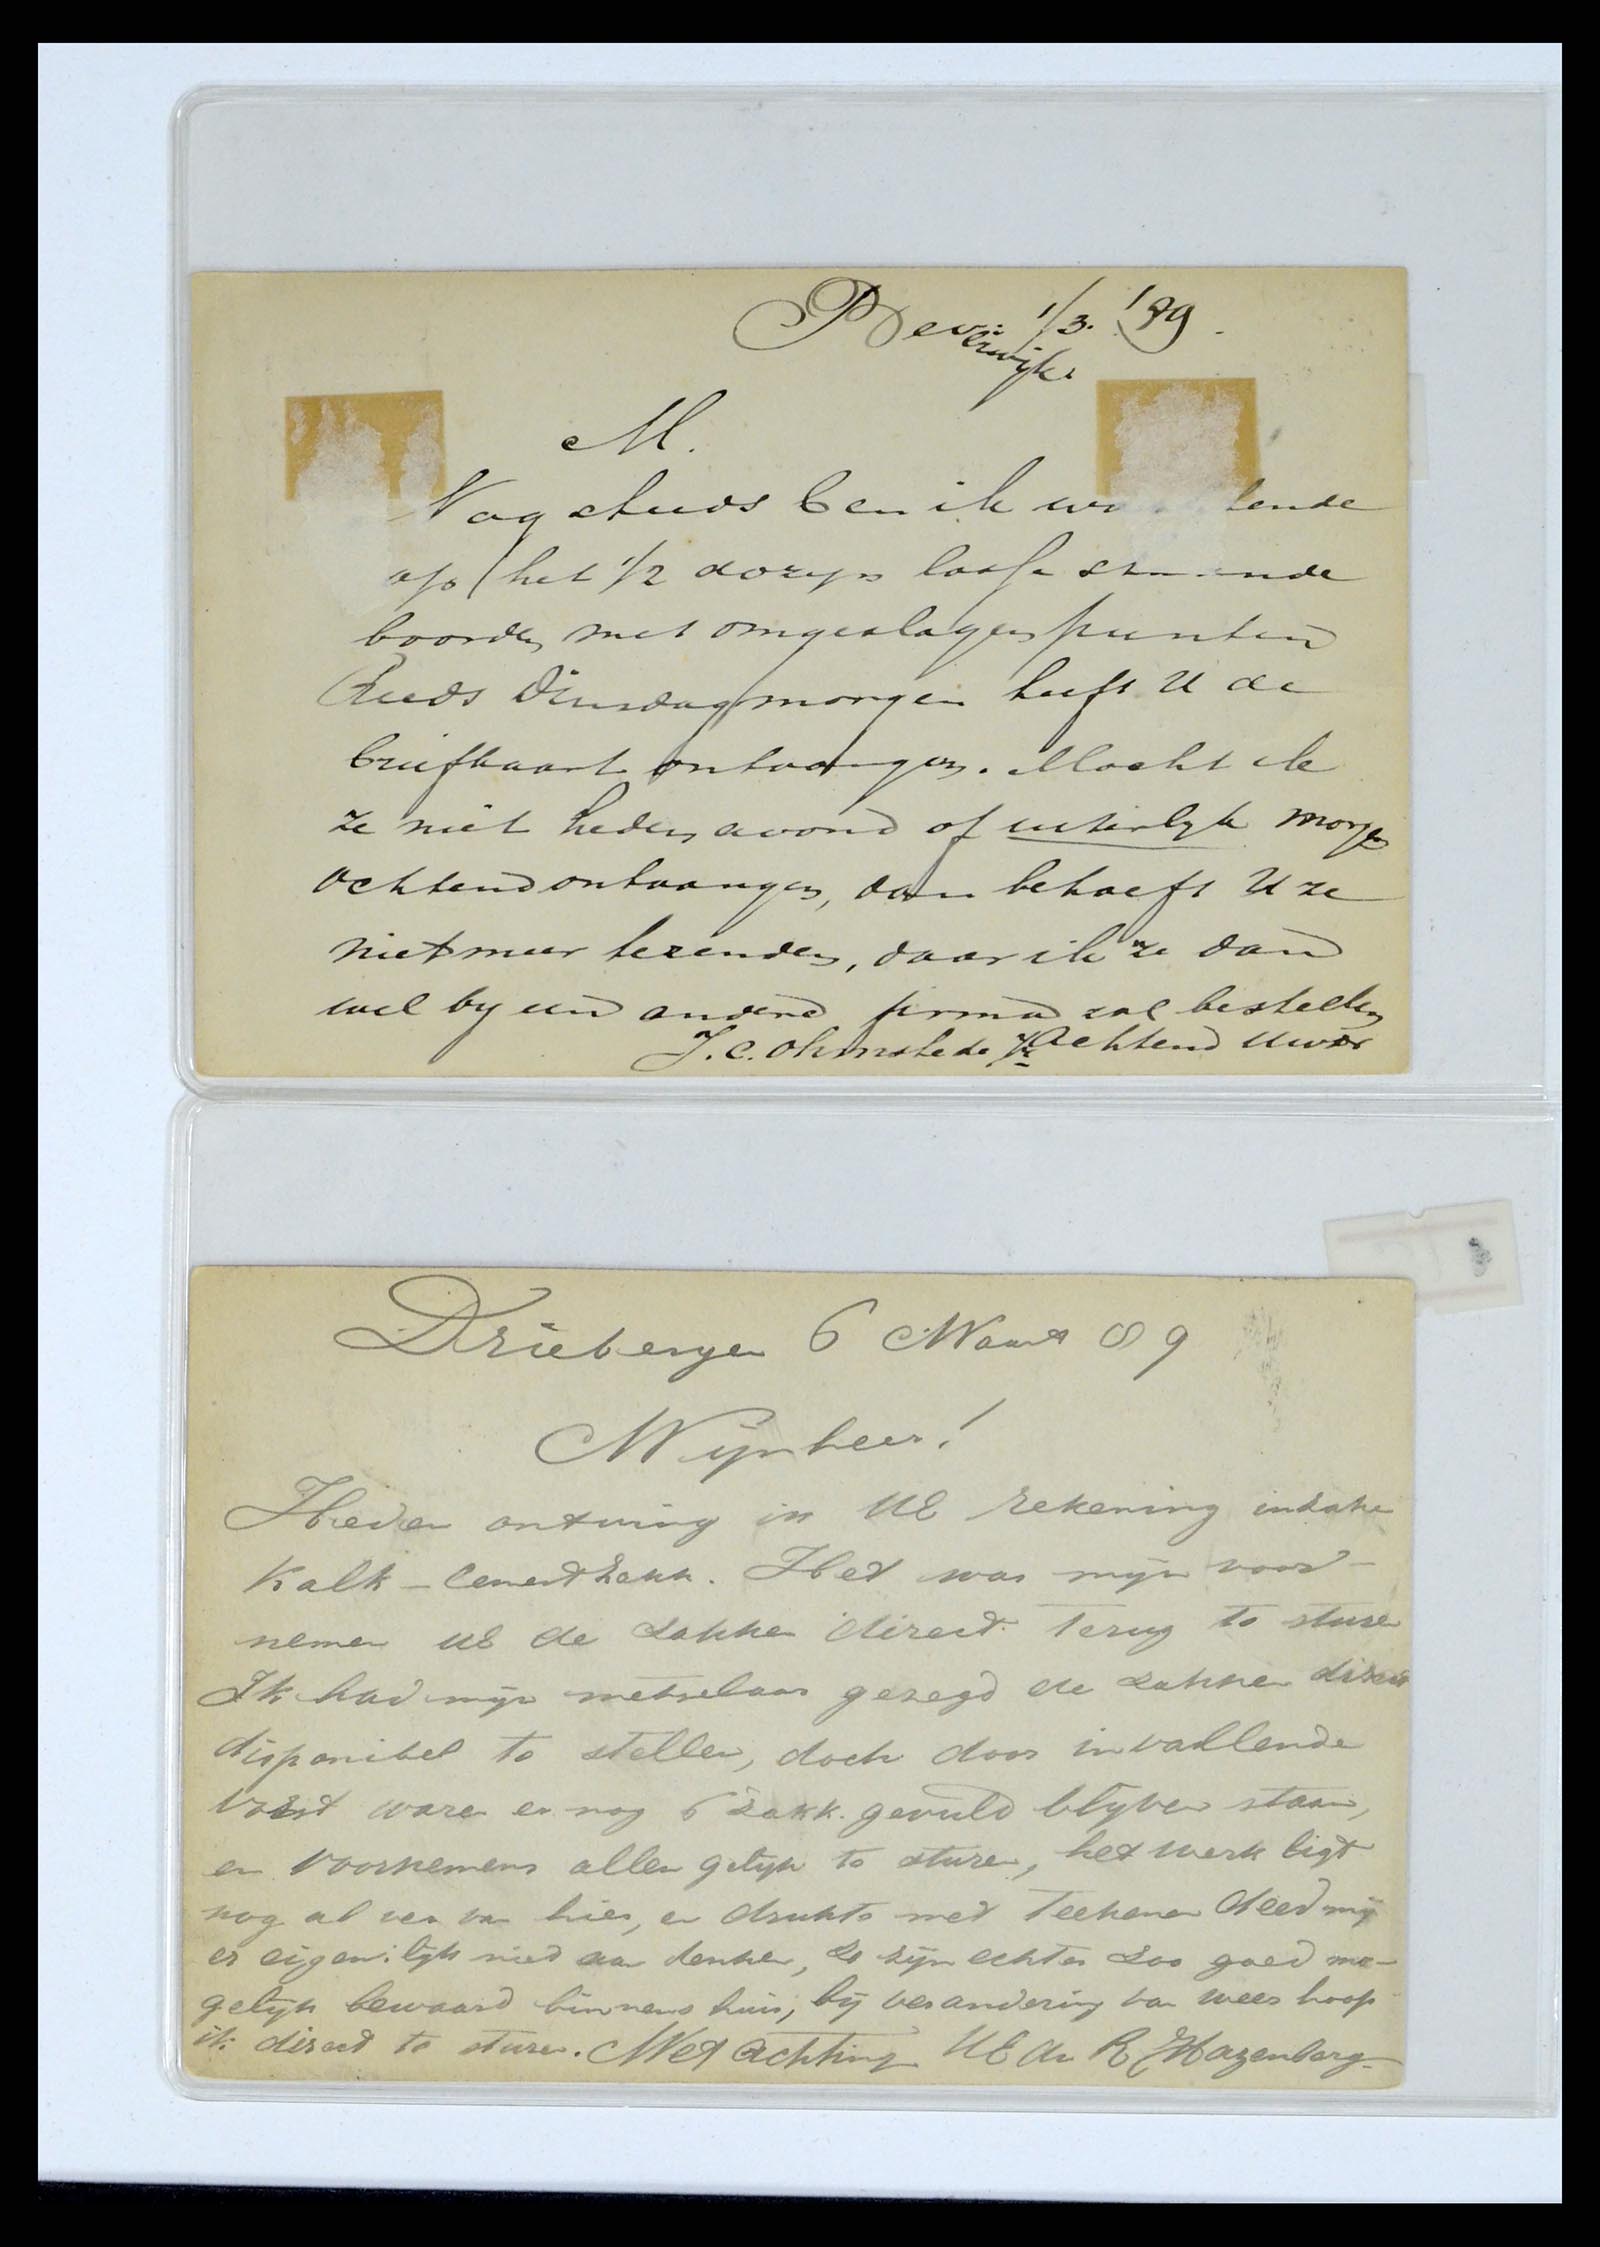 Beverwijk 1/3. '89.
M.
Nog steeds ben ik lende
op het 1/2 dozyn losse
boorden met omgeslagen punten
Reeds Dinsdagmorgen heeft U de
briefkaart ontvangen. Mocht ik
ze niet heden avond of uiterlyk morgen
ochtend ontvangen, dan behoeft U ze
niet meer te zenden, daar ik ze dan
wel by een andere firma zal bestellen
J. C. Ohmstede Jr Achtend Uwer
Driebergen 6 Maart 89
Mijnheer!
Heden ontving ik UE rekening inzake
Kalk-Cement zakk. Het was mijn voor-
nemen UE de zakken direct terug te sturen
Ik had mijn metselaar gezegd de zakken direct
disponibel te stellen, doch door invallende
Vorst waren er nog 6 zakk. gevuld blijven staan,
en Voornemens allen gelijk te sturen, het werk ligt
nog al ver van hier, en drukte met Teekenen deed mij
er eigenlijk niet aan denken, ze zijn echter zoo goed mo-
gelijk bewaard binnens huis, bij verandering van weer hoop
ik direct te sturen. Met Achting UE Dr R Hazenberg